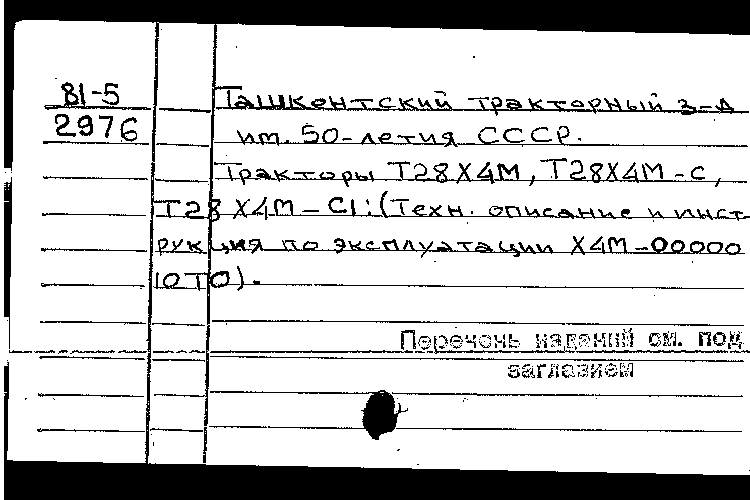 81-5
2976
Ташкентский тракторный з-д
им. 50-летия СССР.
Тракторы Т28Х4М, Т28Х4М-С,
Т28Х4М-С1: (Техн. описание и инст-
рукция по эксплуатации Х4М-00000
10ТО).
Перечень изданий см. под
заглавием